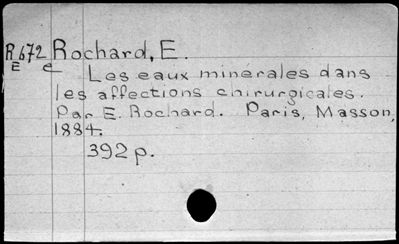 R672 Rochard, E.
E e Les eaux minérales dans
les affections chirurgicales.
Par E. Rochard. Paris, Masson,
1884.
392 p.